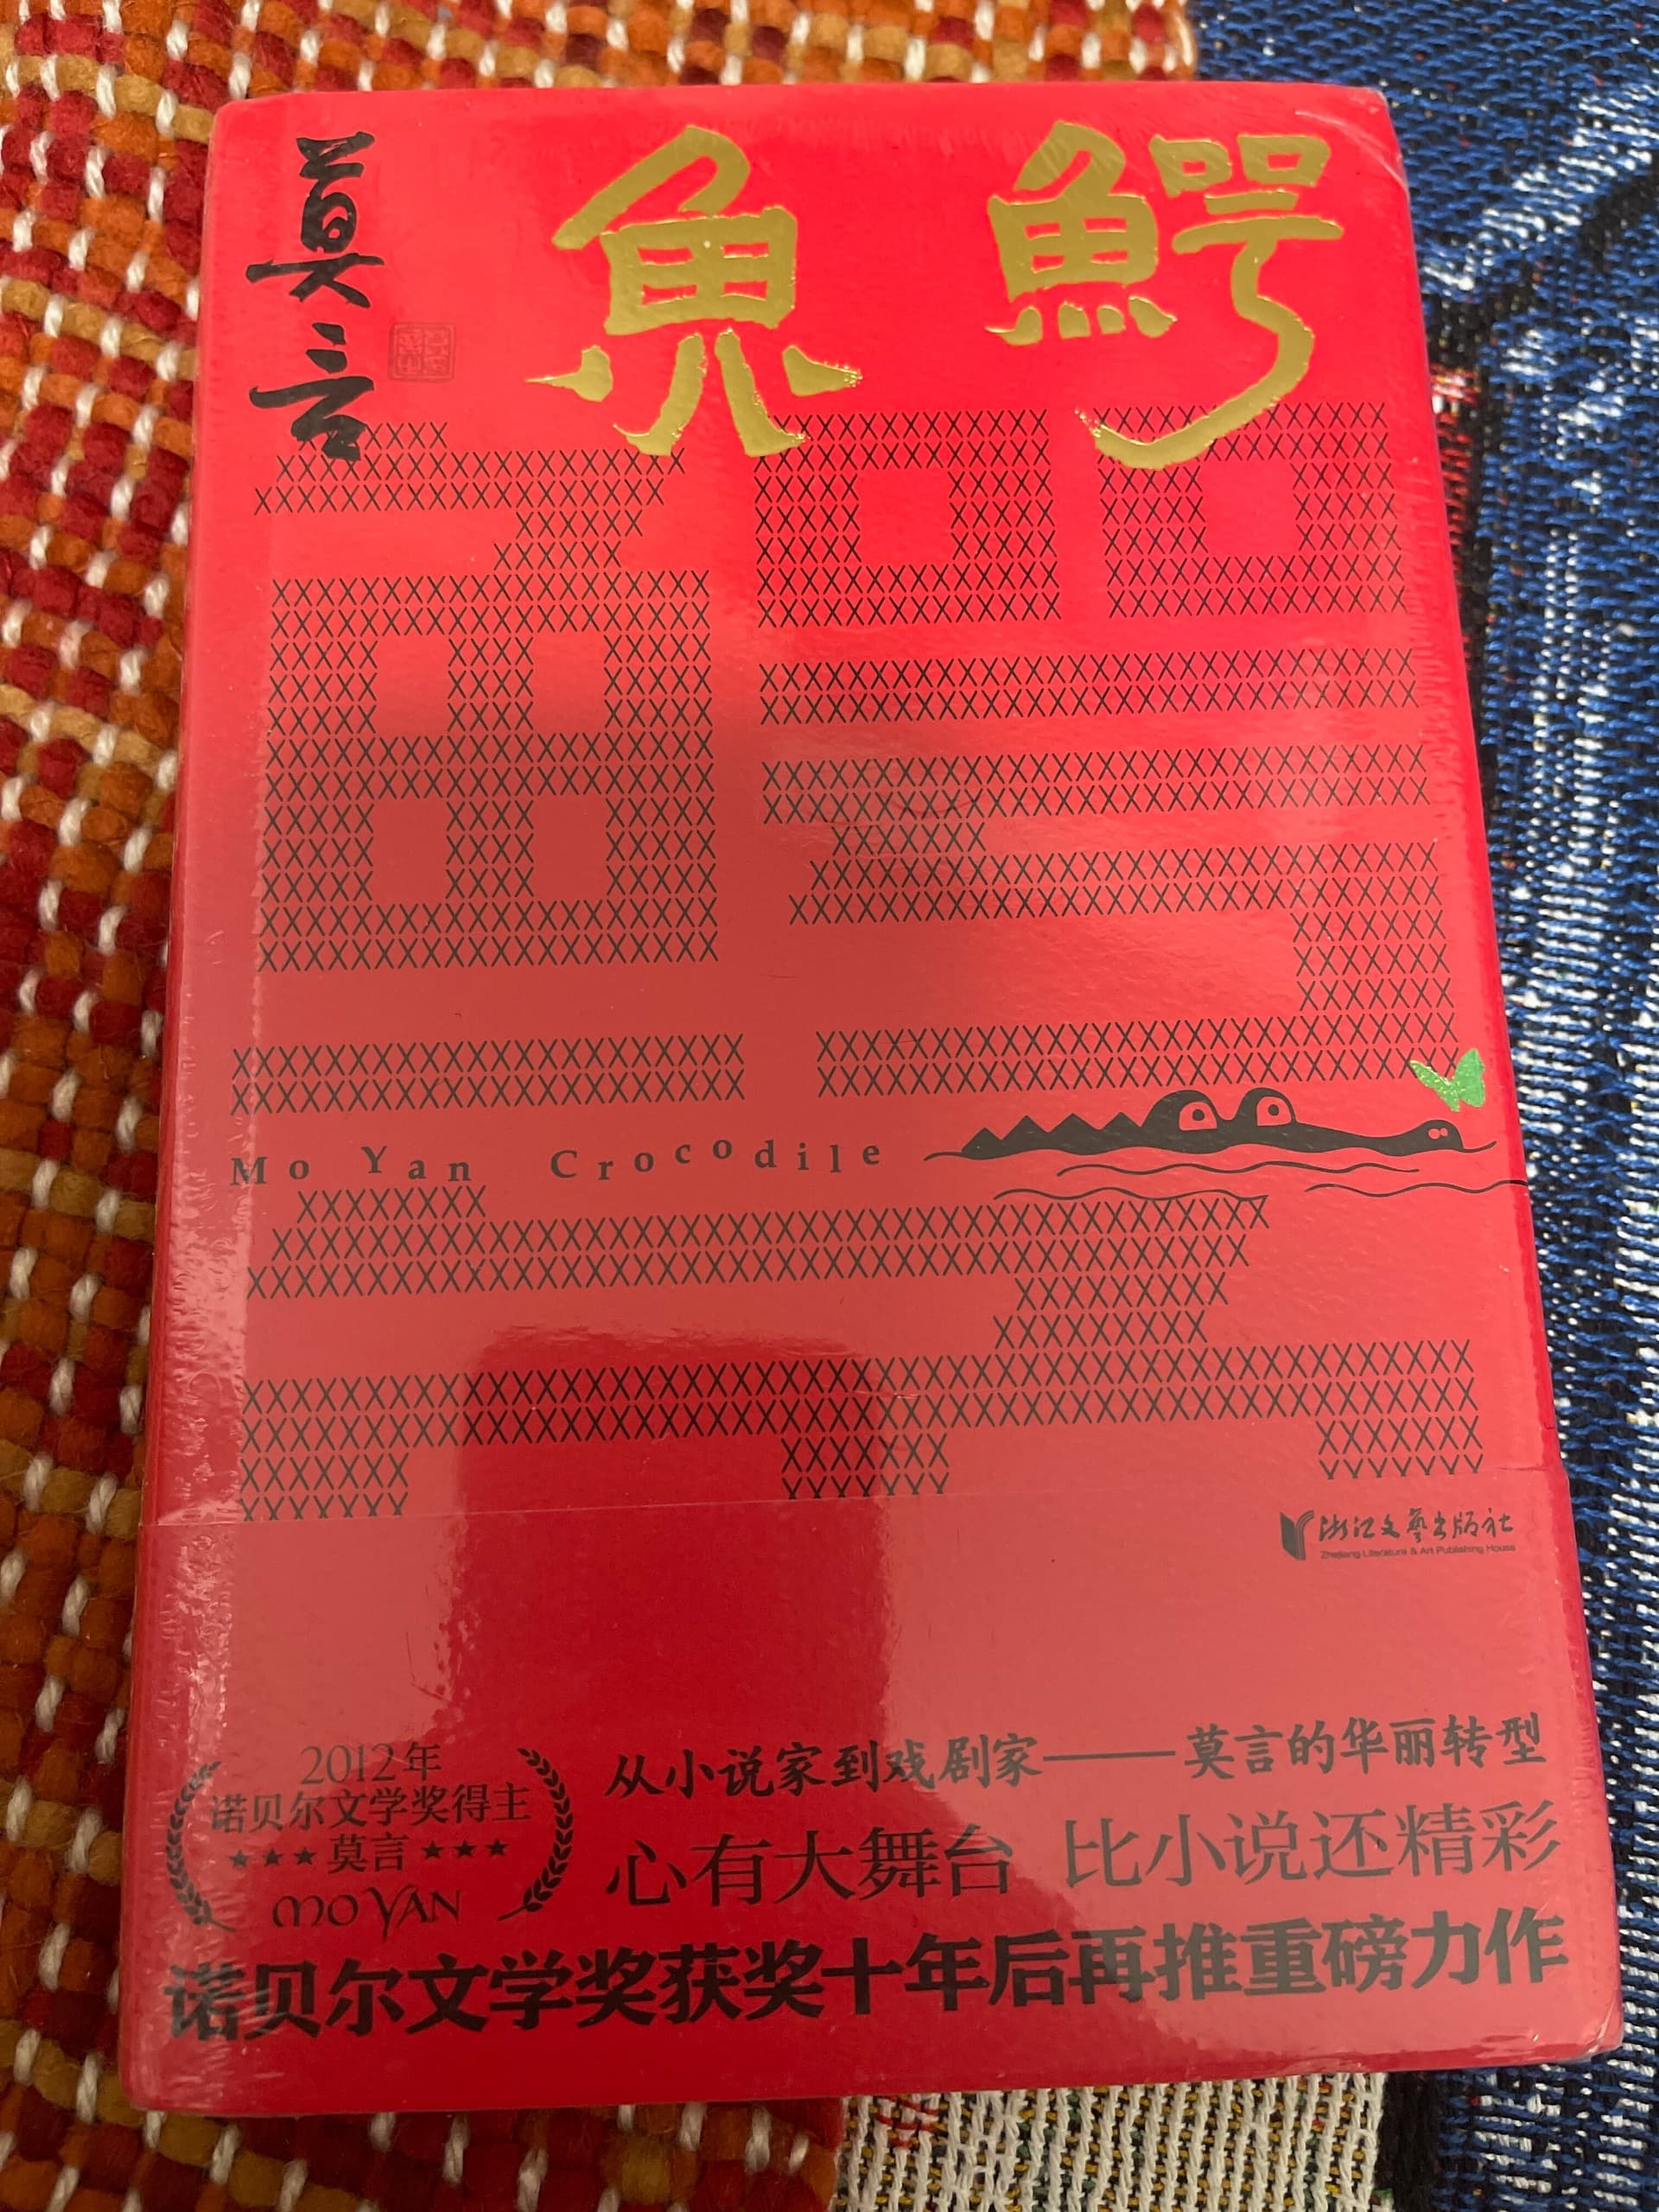 鳄魚
莫言
Mo Yan Crocodile
浙江文藝出版社
Zhejiang Literature & Art Publishing House
2012年
诺贝尔文学奖得主
★★★莫言★★★
MO YAN
从小说家到戏剧家——莫言的华丽转型
心有大舞台 比小说还精彩
诺贝尔文学奖获奖十年后再推重磅力作